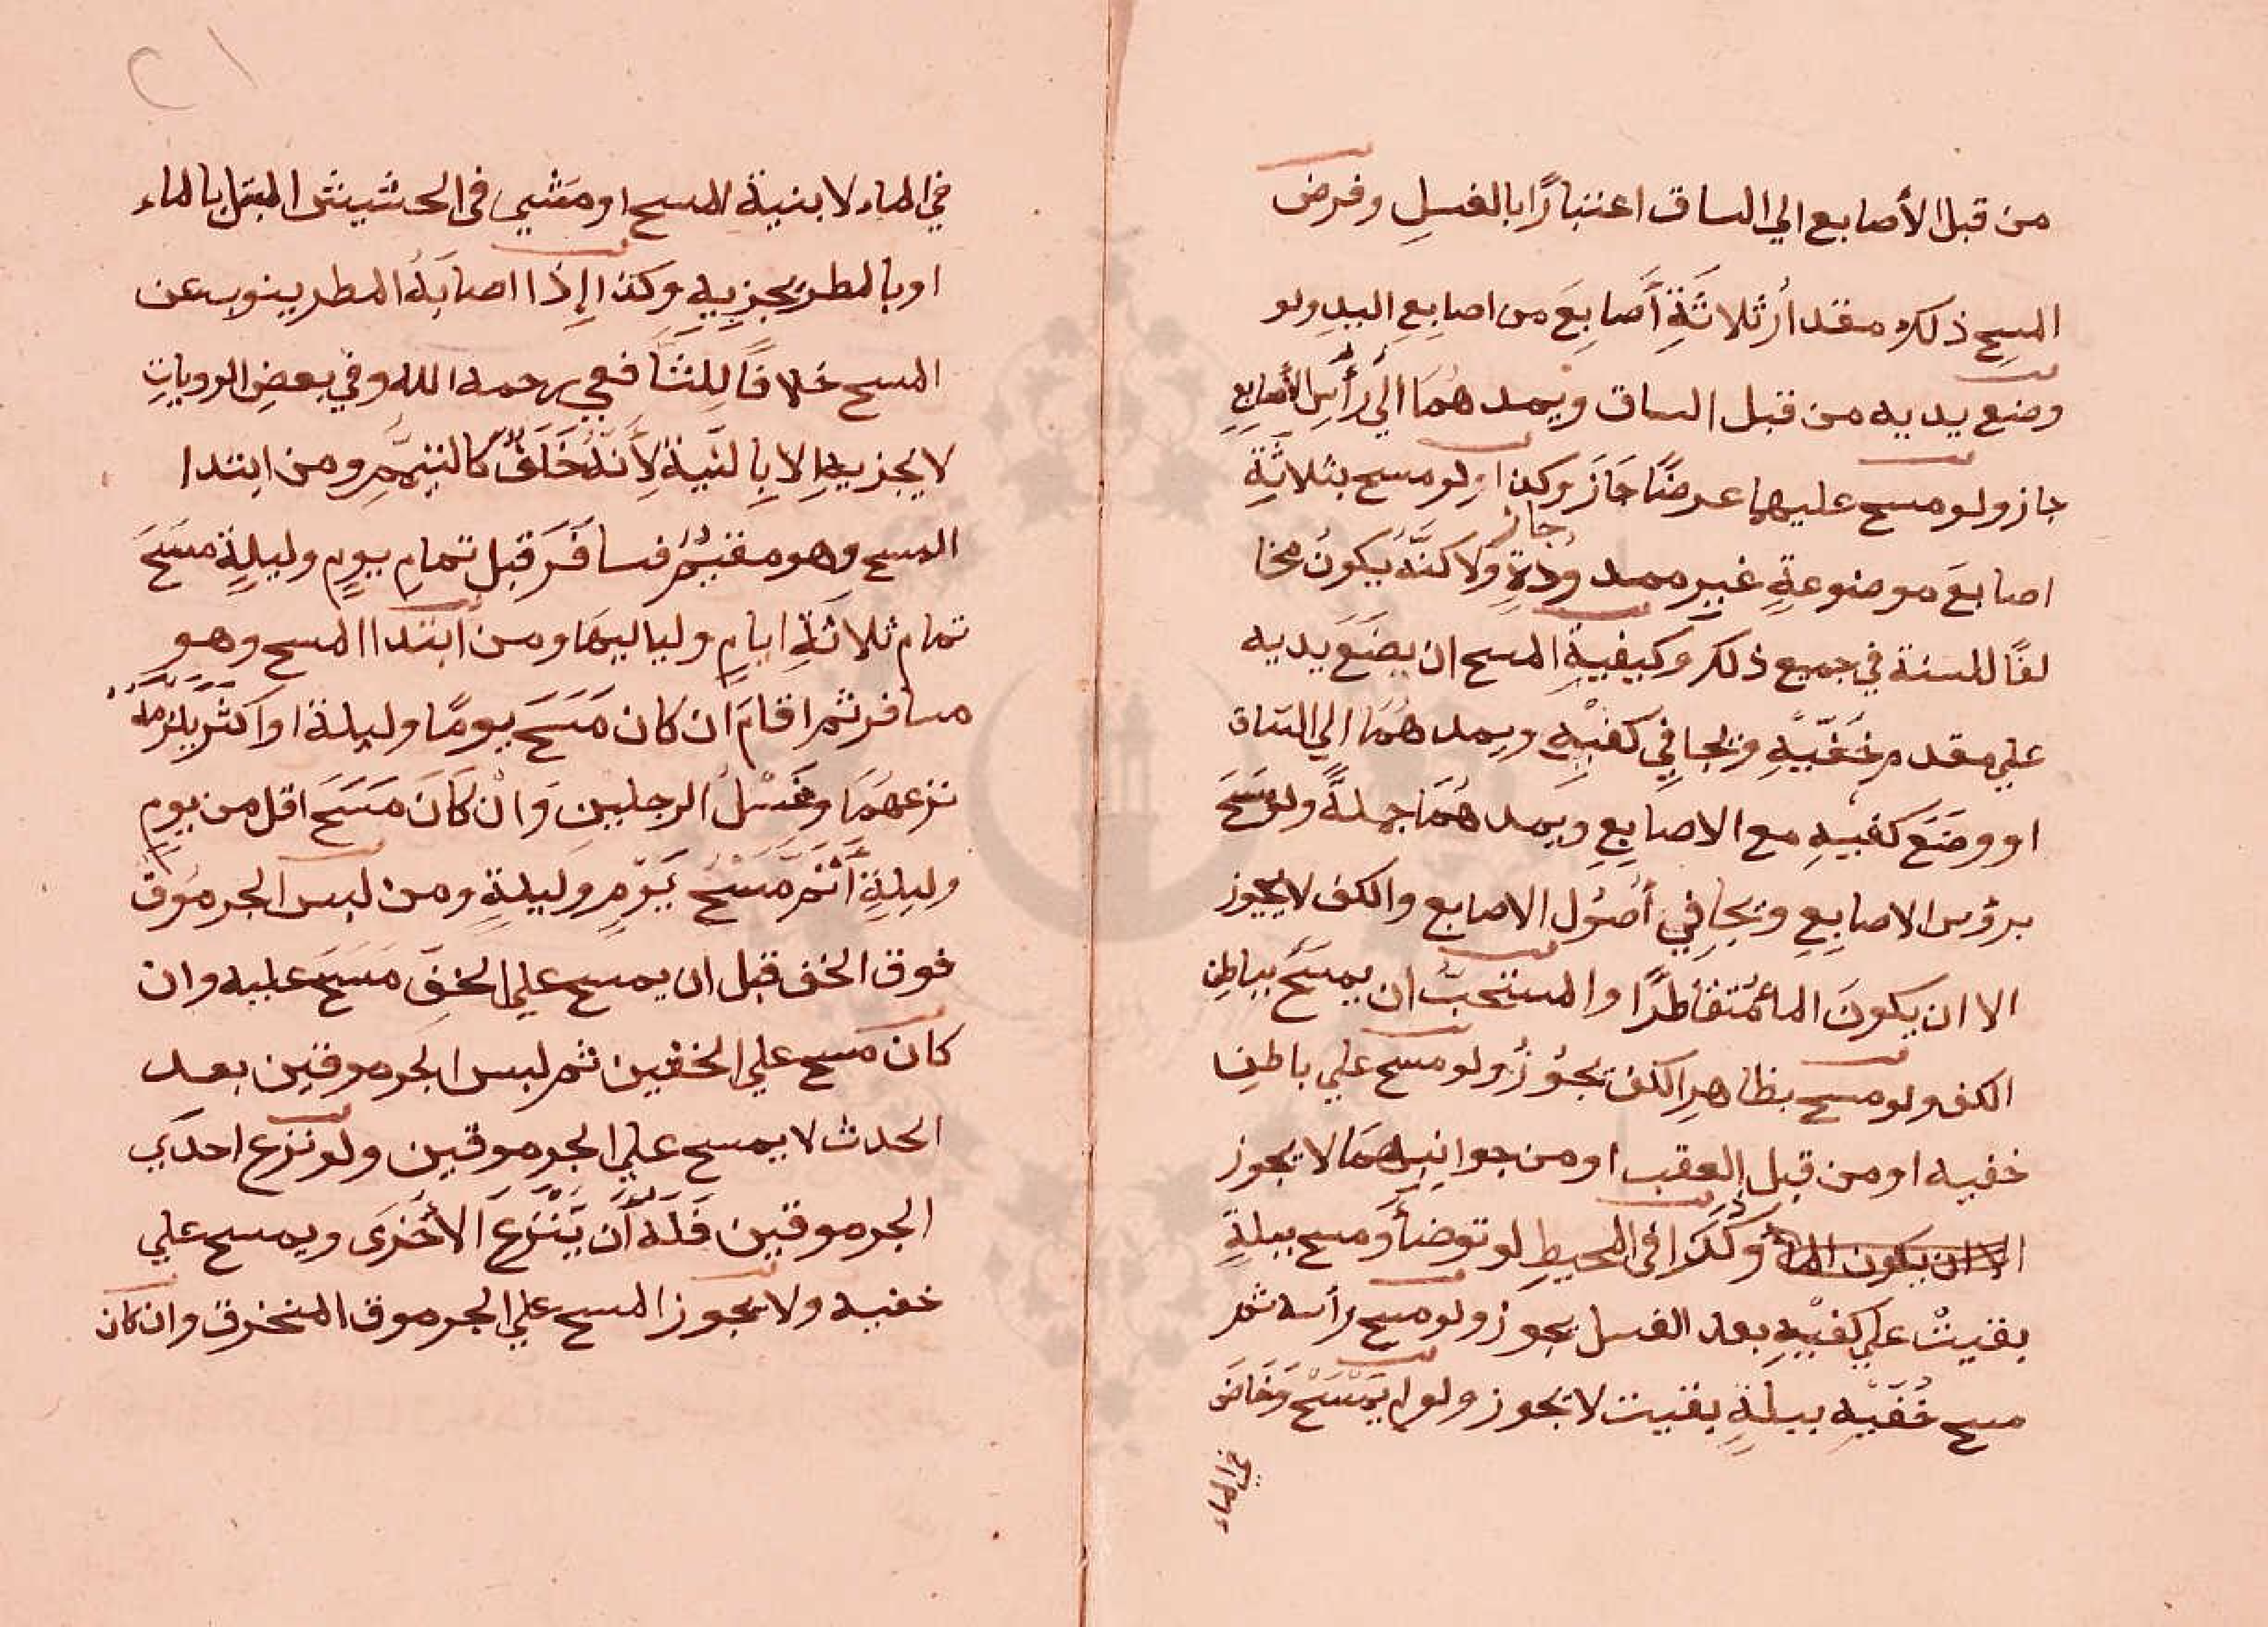 من قبل الأصابع الي الساق اعتبارًا بالغسلِ وفرض
المسحِ ذلك مقدار ثلاثَةِ أَصابِعَ من اصابِعِ اليدِ ولو
وضع يديه من قبل الساق ويمدهُمَا الَي رَأسِ الأصابعِ
جاز ولو مسح عليهما عرضًا جَازَ وكذا ولو مسح بثلاثَةِ
اصابعَ موضوعةٍ غيرِ ممدودةٍ جاز ولاكنَّهُ يكونُ مخا
لفًا للسنة في جميع ذلك وكيفيةِ المسح ان يضَعَ يديه
علي مقدم خُفَّيْهِ ويجافِي كفيْهِ ويمدهُمَا الي الساق
او وضَعَ كفيهِ مع الاصابِعِ ويمدهُمَا جملةً ولو مسَحَ
برؤس الاصابِعِ ويجافِي أُصُول الاصابع والكف لا يجوز
الا ان يكونَ الماءُ مُتقاطرًا والمستحبُّ ان يمسَحَ بباطِنِ
الكف ولو مسح بظاهرِ الكف يجُوزُ ولو مسح علي باطِنِ
خفيه او من قبل العقب او من جوانبِهمَا لا يجوز
الا ان يكون الماء وكذا في المحيطِ لو توضأَ ومسح ببلةٍ
بقيتْ علي كفيْهِ بعد الغسل يجوز ولو مسح رأسه ثم
مسح خُفَّيْهِ ببلةٍ بقيت لا يجوز ولو لم يَمْسَحْ وَخَاضَ
في الماء
٢١
في الماء لا بنية المسح او مَشي في الحشيش المبتل بالماء
او بالمطر يجزِيهِ وكذا اإِذا اصابَهُ المطر ينوب عن
المسح خلافًا لِلشَافعي رحمه الله وفي بعضِ الروياتِ
لا يجزيهِ الا بِالنَّيةِ لِأَنَّهُ خَلَفٌ كالتيمَّمِ ومن ابتدا
المسح وهو مقيمٌ فسافَرَ قبل تمامِ يومٍ وليلةٍ مسَحَ
تمام ثلاثَةِ ايامٍ ولياليهَا ومن ابتدا المسح وهو
مسافر ثم اقامَ ان كان مَسَحَ يومًا وليلة او اكثر يلزمهُ
نزعهُمَا وغَسْلُ الرجلين وَانْ كَانَ مَسَحَ اقل من يومٍ
وليلةٍ أَتَمَّ مَسْحَ يَوْمٍ وليلةٍ ومن لبس الجرمُوق
فوق الخف قبل ان يمسح علي الخفّ مَسَحَ عليه وان
كان مسح علي الخفين ثم لبس الجرموقين بعد
الحدث لا يمسح علي الجرموقين ولو نزع احدَي
الجرموقين فَلَهُ أَنْ يَنْزِعَ الأُخْرَى ويمسح علي
خفيه ولا يجوز المسح علي الجرموق المنخرق وان كان